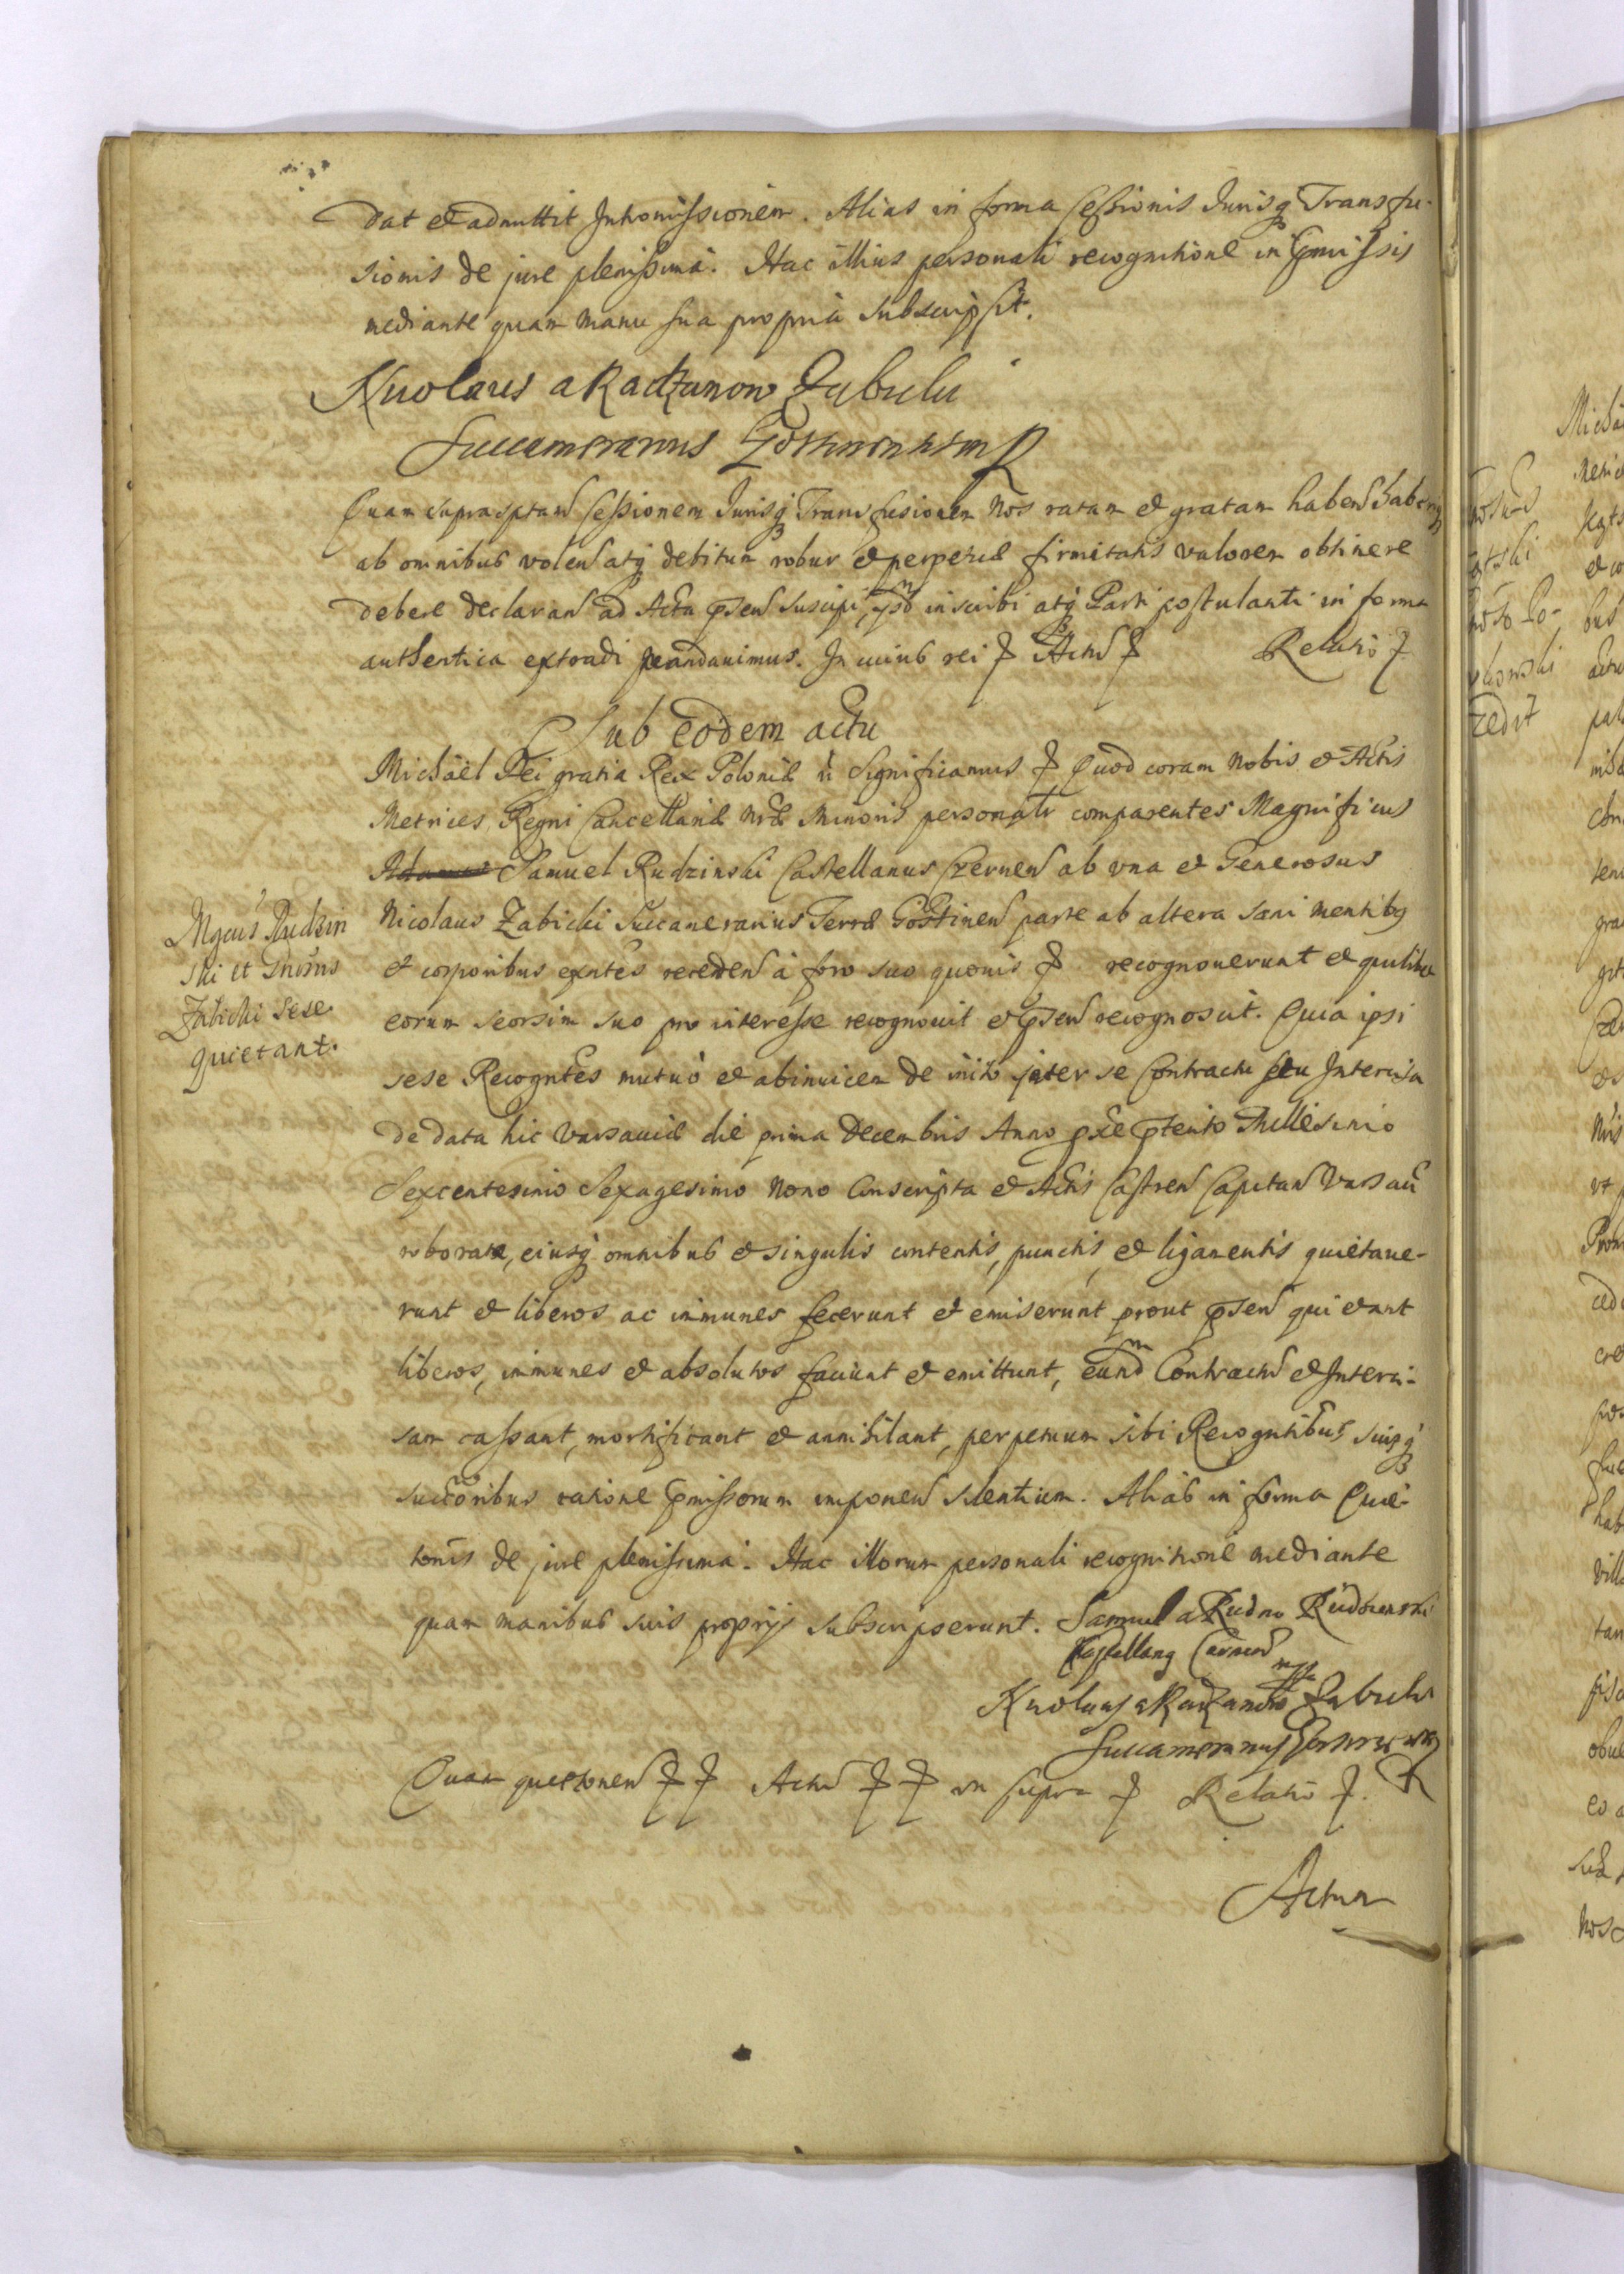 dat et admittit Intromissionem. Alias in forma Cessionis Jurisq Transfu-
sionis de jure plenissima. Hac illius personali recognitione in pmissis
mediante quam manu sua propria subscripsit.
Nicolaus a Radzanow Zabicki
Succamerarius Gostinensis mp
Quam suprascptam Cessionem Jurisq Transfusionem Nos ratam et gratam haben haberiq
ab omnibus volen atq debitum robur et perpetuæ firmitatis valorem obtinere
debere declaran ad Acta psen suscipi, ysdm inscribi atq Parti postulanti in forma
authentica extradi mandauimus. In cuius rei Actu Relatio
Sub eodem actu
Michäel Dei gratia Rex Poloniæ Significamus Quod coram Nobis et Actis
Metrices Regni Cancellariæ Nræ Minoris personalr comparentes Magnificus
Samuel Rudzinski Castellanus Czernen ab vna et Generosus
Nicolaus Zabicki Succamerarius Terræ Gostinen parte ab altera sani mentibq
et corporibus exntes receden à foro suo quouis recognouerunt et quilibet
eorum seorsim suo pro interesse recognouit et psen recognoscit. Quia ipsi
sese Recogntes mutuò et abinuicem de inito inter se Contractu seu Intercisa
de data hic Varsauiæ die prima Decembris Anno pxe pterito Millesimo
Sexcentesimo Sexagesimo Nono conscripta et Actis Castren Capitan Varsauien
roborata, eiusq omnibus et singulis contentis, punctis, et ligamentis quietaue-
runt et liberos ac immunes fecerunt et emiserunt prout psen quietant
liberos, immunes et absolutos faciunt et emittunt, eundm Contractu et Interci-
sam cassant, mortificant et annihilant, perpetuum sibi Recogntibus suisq
succoribus ratione pmissorum imponen silentium. Alias in forma Quie-
tonis de jure plenissima. Hac illorum personali recognitione mediante
quam manibus suis proprijs subscripserunt. Samuel a Rudno Rudzienski
Castellanq Czernen mpp
Nicolaus a Radzanow Zabicki
Succamerarius Gostinensis mp
Quam quietonem Actu vt supra Relatio
Actum
Mgcus Rudzin
ski et Gnosus
Zabicki sese
quietant.